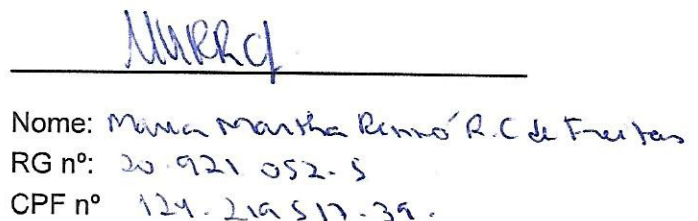 MMRRCf
Nome: Maria Martha Rennó R.C de Freitas
RG nº: 20.921.052-5
CPF nº 124.219.517-39.